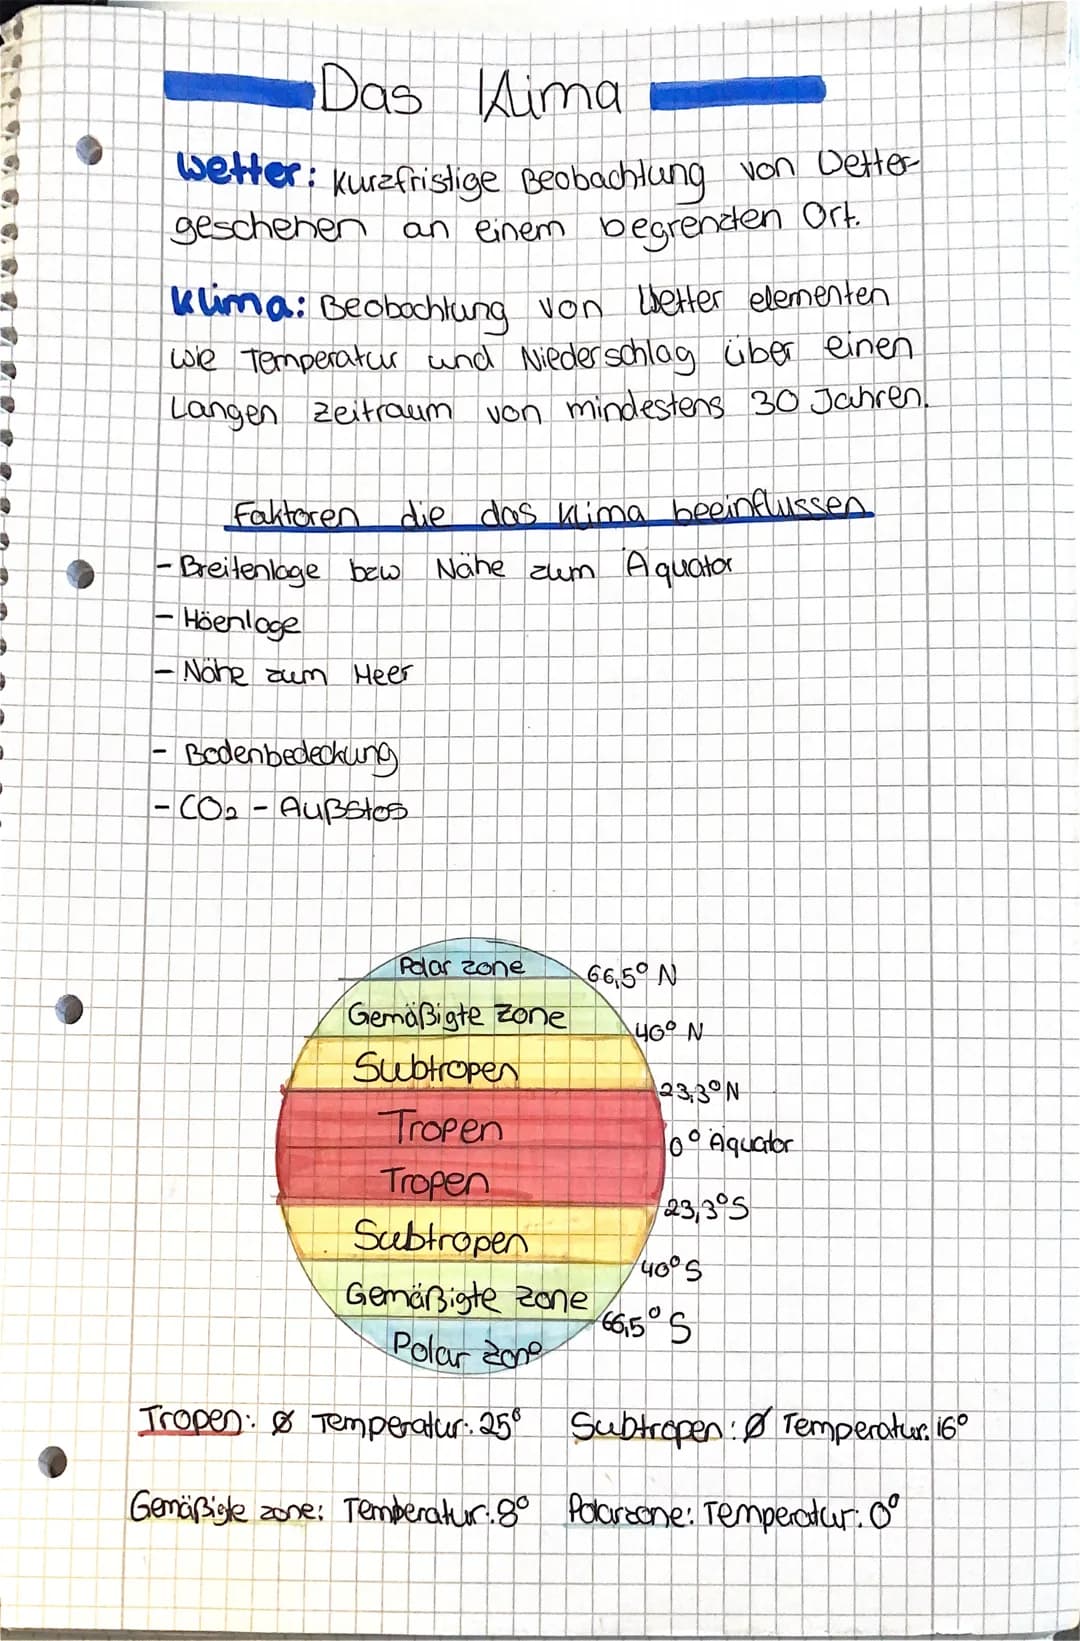 Das Klima
Wetter: Kurzfristige Beobachtung von Wetter-
geschehen an einem begrenzten Ort.
Klima: Beobachtung von Wetter elementen
wie Temperatur und Niederschlag über einen
Langen Zeitraum von mindestens 30 Jahren.
Faktoren die das Klima beeinflussen
- Breitenlage bzw Nähe zum Äquator
- Höenlage
- Nähe zum Meer
- Bodenbedeckung
- CO₂ - Außstos
Polar zone 66,5° N
Gemäßigte Zone 40° N
Subtropen 23,3° N
Tropen 0° Äquator
Tropen 23,3° S
Subtropen 40° S
Gemäßigte Zone 66,5° S
Polar Zone
Tropen: Ø Temperatur: 25° Subtropen: Ø Temperatur: 16°
Gemäßigte zone: Temperatur: 8° Polarzone: Temperatur: 0°